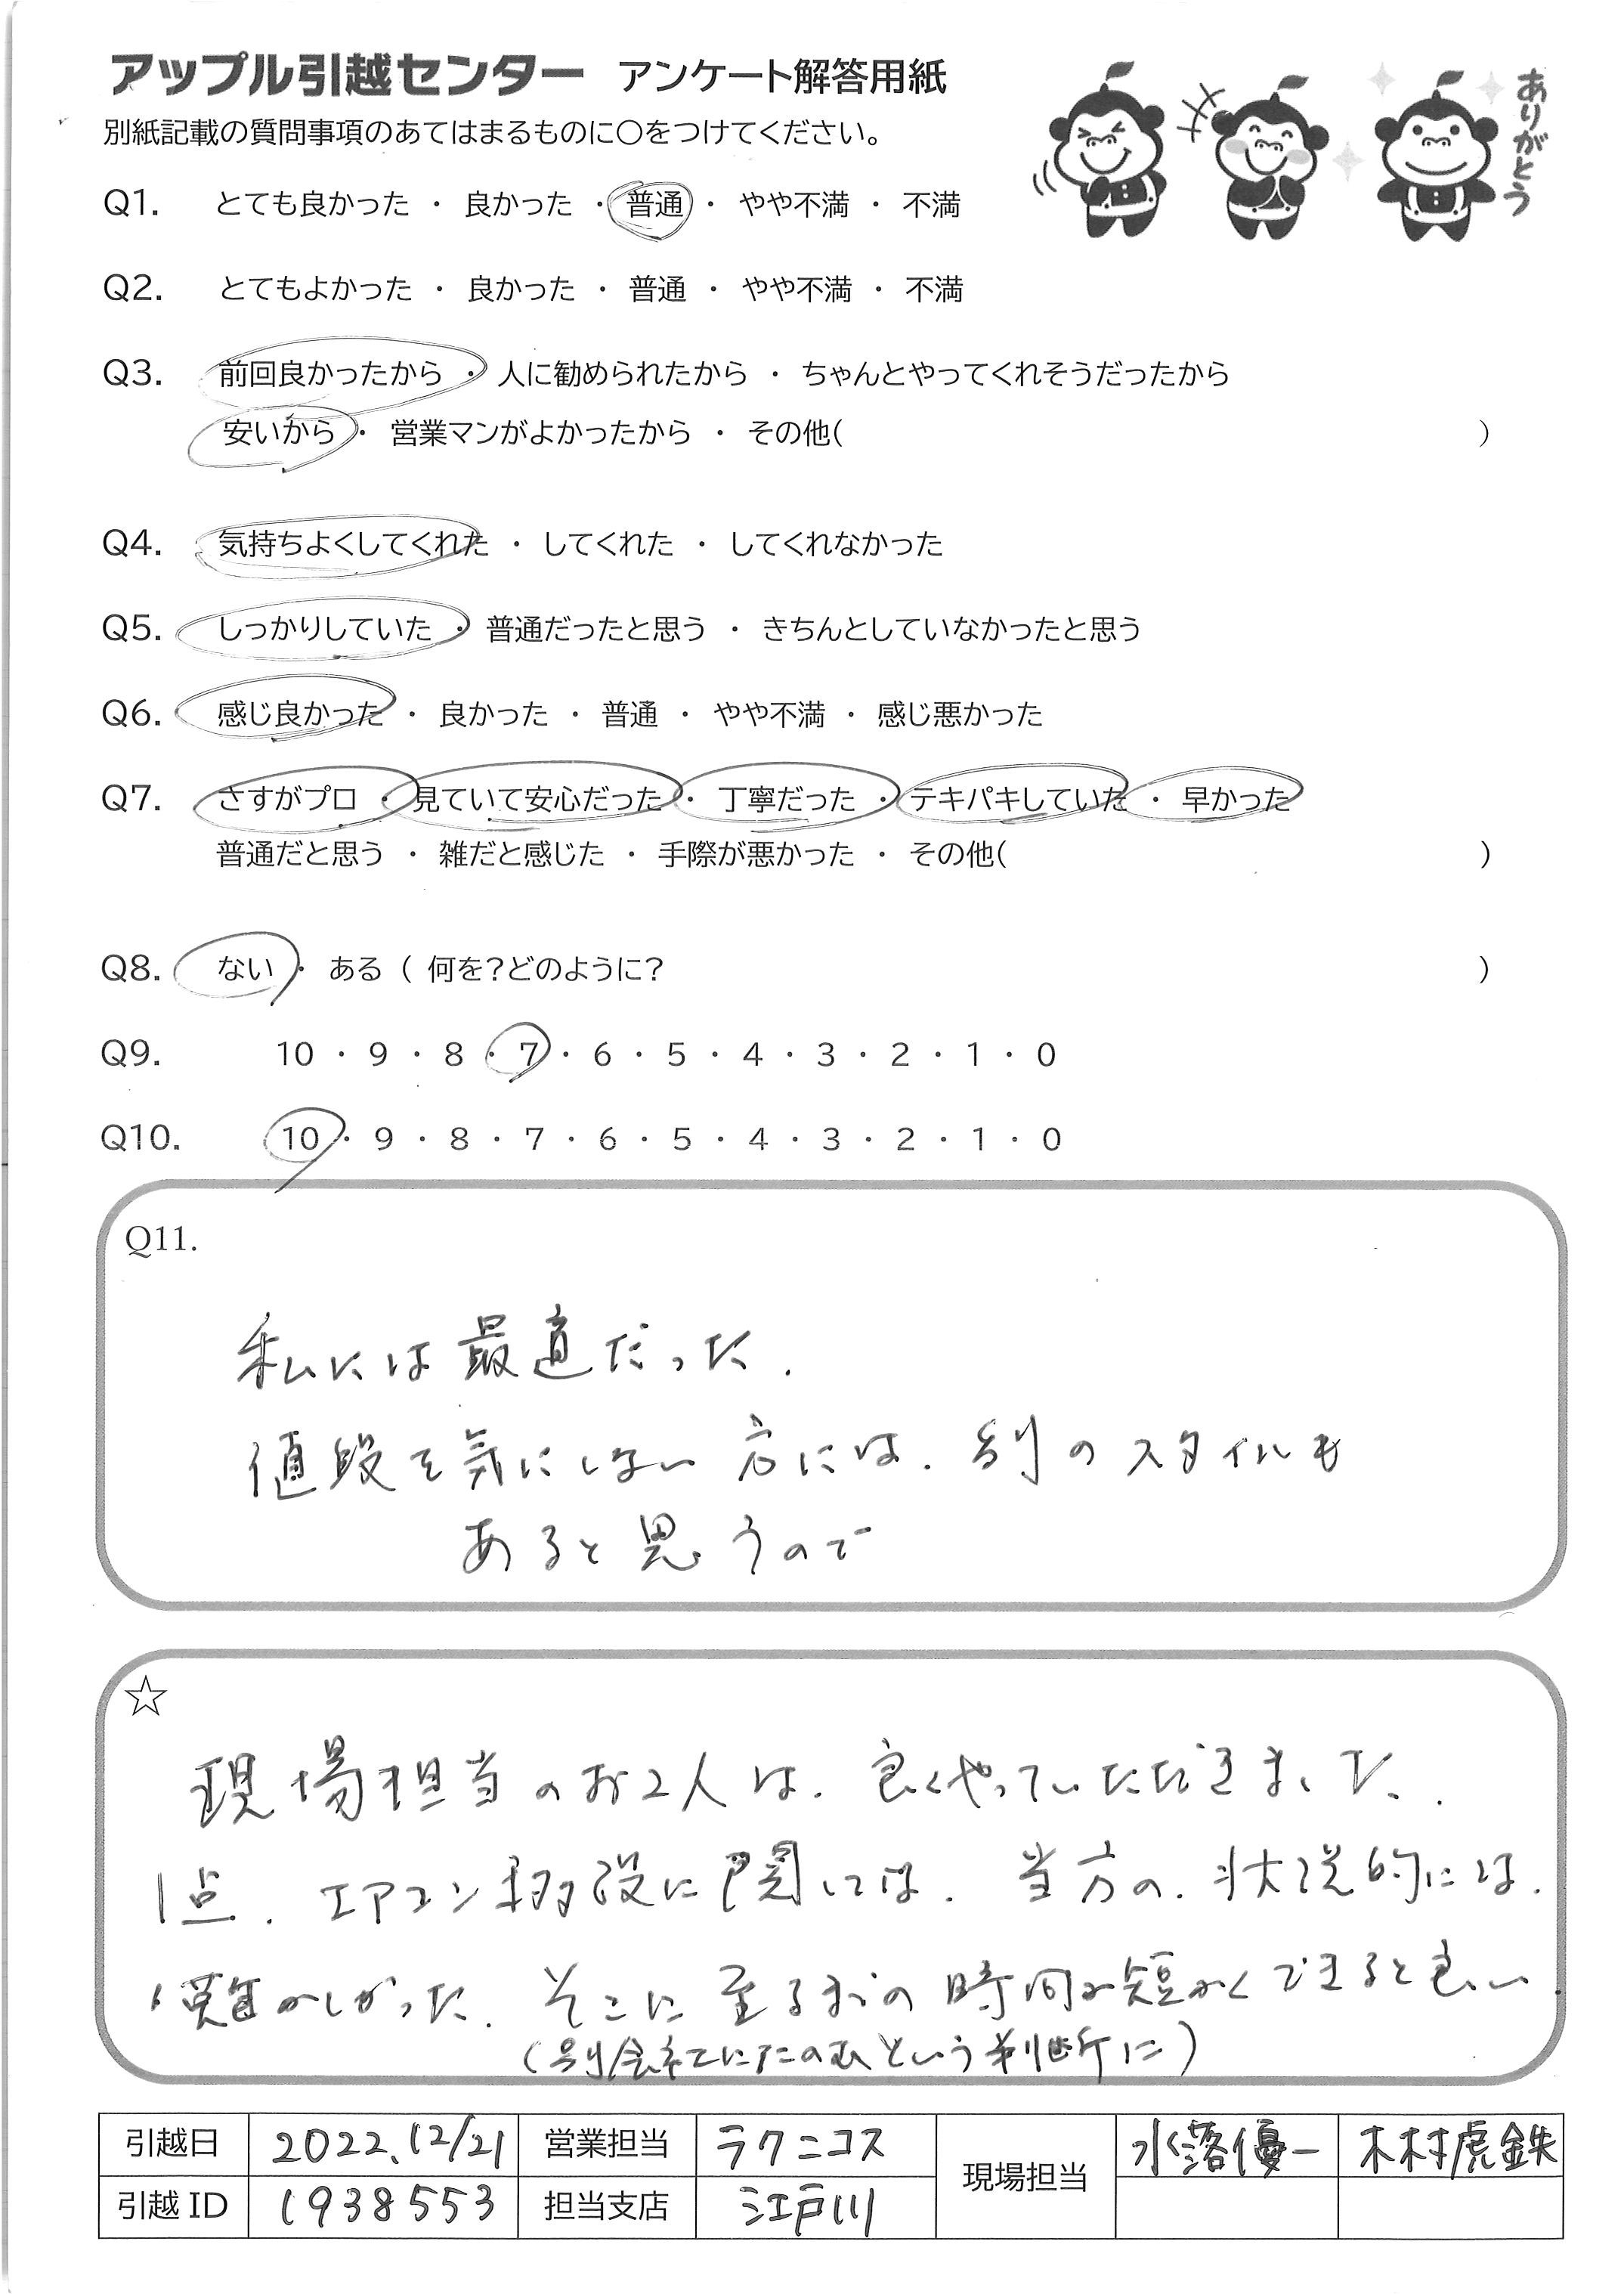 アップル引越センター アンケート解答用紙
ありがとう
別紙記載の質問事項のあてはまるものに○をつけてください。
Q1. とても良かった ・ 良かった ・ 普通 ・ やや不満 ・ 不満
Q2. とてもよかった ・ 良かった ・ 普通 ・ やや不満 ・ 不満
Q3. 前回良かったから ・ 人に勧められたから ・ ちゃんとやってくれそうだったから
安いから ・ 営業マンがよかったから ・ その他( )
Q4. 気持ちよくしてくれた ・ してくれた ・ してくれなかった
Q5. しっかりしていた ・ 普通だったと思う ・ きちんとしていなかったと思う
Q6. 感じ良かった ・ 良かった ・ 普通 ・ やや不満 ・ 感じ悪かった
Q7. さすがプロ ・ 見ていて安心だった ・ 丁寧だった ・ テキパキしていた ・ 早かった
普通だと思う ・ 雑だと感じた ・ 手際が悪かった ・ その他( )
Q8. ない ・ ある ( 何を?どのように? )
Q9. 10 ・ 9 ・ 8 ・ 7 ・ 6 ・ 5 ・ 4 ・ 3 ・ 2 ・ 1 ・ 0
Q10. 10 ・ 9 ・ 8 ・ 7 ・ 6 ・ 5 ・ 4 ・ 3 ・ 2 ・ 1 ・ 0
Q11.
私には最適だった.
値段を気にしない方には. 別のスタイルも
あると思うので
☆
現場担当のお2人は. 良くやっていただきました.
1点. エアコン移設に関しては. 当方の. 状況的には.
難かしかった. そこに至るまでの時間が短かくできると良い
(別会社にたのむという判断に)
引越日 2022.12/21 営業担当 ラクニコス 現場担当 水落優一 木村虎鉄
引越ID 1938553 担当支店 江戸川